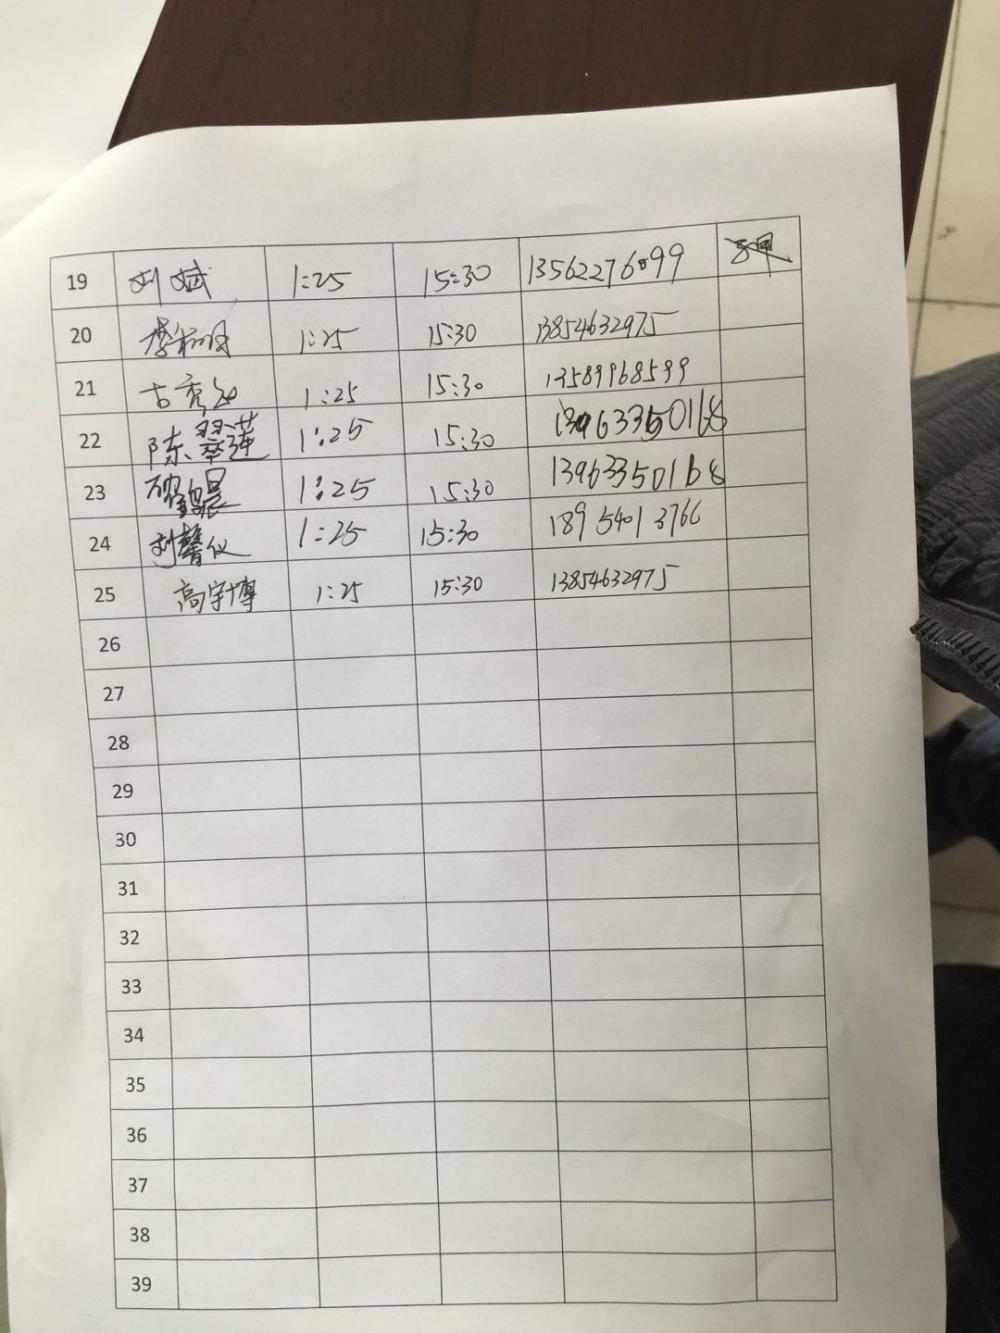 19 刘斌 1:25 15:30 13562276899
20 1:25 15:30 13854632975
21 古秀 1:25 15:30 13589968599
22 陈翠莲 1:25 15:30 13963350168
23 1:25 15:30 13963350168
24 刘馨仪 1:25 15:30 18954013766
25 高宇博 1:25 15:30 13854632975
26
27
28
29
30
31
32
33
34
35
36
37
38
39